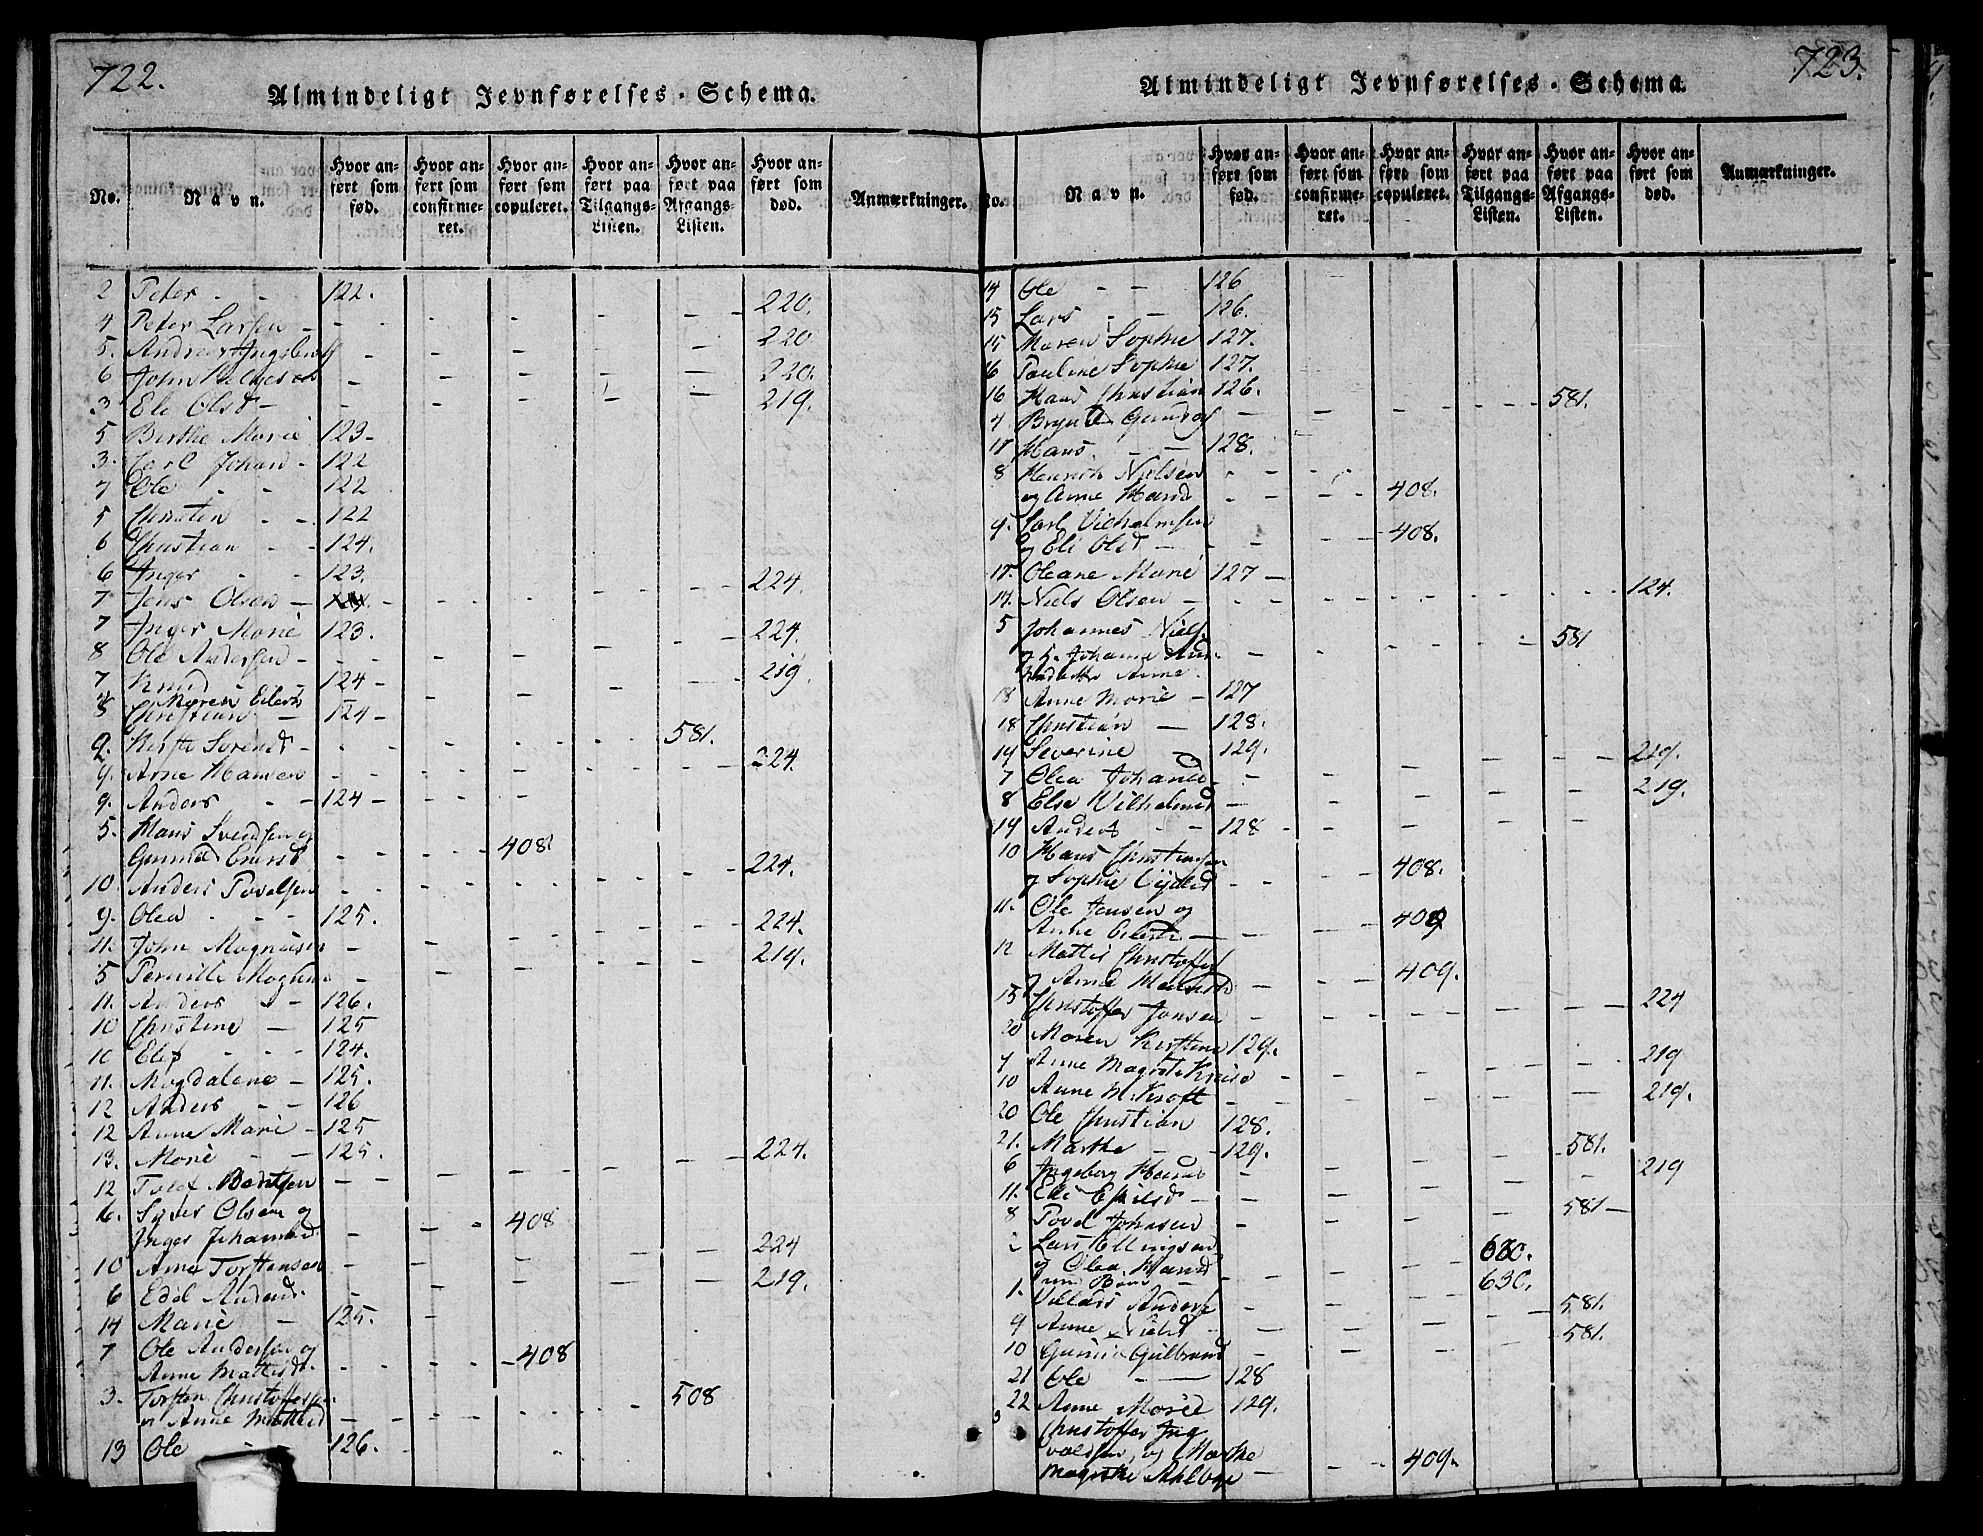 722.
Almindeligt Jevnførelses-Schema.
No.
Navn.
Hvor anført som fød.
Hvor anført som confirmeret.
Hvor anført som copuleret.
Hvor anført paa Tilgangs-Listen.
Hvor anført paa Afgangs-Listen.
Hvor anført som død.
Anmærkninger.
2 Peter - - 122.
4 Peter Larsen - 220.
5. Andreas Ingebrets 220
6 John Helgesen 220.
3 Eli Olsd - 219.
5 Birthe Marie 123-
3. Carl Johan - 122
4 Ole - - 122
5 Christen - - 122
6 Christian - - 124.
6 Inger - 123.
7 Jens Olsen - 224
7 Inger Marie 123.
8 Ole Andersen - 224.
7 Knud - 124- 219.
Maren Eilerts
8 Christian - 124-
2. Kirsti Sørensd - 581.
9. Arne Hansen 224.
9. Anders - - 124-
5. Hans Svendsen og
Gunild Enersd 408
10. Anders Povelsen 224.
9. Olea - - - 125.
11. John Magnusen - 224.
5 Pernille Mogens - 219.
11. Anders - - 126.
10 Christine - 125
10 Elef - - - 124.
11. Magdalene - 125.
12 Anders - - 126
12 Anne Marie - 125
13. Marie - - 125.
12 Tolef Bentsen 224.
6. Syver Olsen og
Inger Johannesd. 408
10 Arne Torstensen 224
6 Edel Andersd. 219.
14 Marie - 125.
7 Ole Andersen og
Anne Mattisd. 408
3. Torsten Christoffersen
og Anne Mattisd 508
13 Ole - 126.
723.
Almindeligt Jevnførelses-Schema.
No.
Navn.
Hvor anført som fød.
Hvor anført som confirmeret.
Hvor anført som copuleret.
Hvor anført paa Tilgangs-Listen.
Hvor anført paa Afgangs-Listen.
Hvor anført som død.
Anmærkninger.
14 Ole - - 126
15 Lars - - 126.
15 Maren Sophie 127.
16 Pauline Sophie 127.
16 Hans Christian 126.
4 581.
17 Hans. - - 128.
8 Henrich Nielsen
og Anne Hansd 408.
9. Carl Vilhelmsen
og Eli Olsd - 408.
17. Oleane Marie 127 -
14. Niels Olsen - 124.
5 Johannes Niels.
581
Anne.
18 Anne Marie - 127
18 Christian - 128.
19 Severine - 129.
7 Olea Johansd - 219.
8 Else Vilhelmsd - 219.
19 Anders - - 128 -
10 Hans Christensen
og Sophie 408.
11. Ole Jensen og
Anne Eilertsd - 409
12 Mattis Christoffers
og Anne 409.
15 Christoffer Jonsen 224
20 Maren Kirstine 129.
9 Anne Magrete Kruse 219
10 Anne M. Kroft 219.
20 Ole Christian 128.
21. Marthe - - 129.
6 Ingeborg Hansd - 581.
11. Elie Eskilsd - 219
8 Povel Johnsen 581 -
2 Lars Ellingsen
og Olea Hansd 630.
1. 630.
Villads Anders 581.
9 Anne Nielsd 581.
10 Gunild Gulbrand
21 Ole - - 128
22 Anne Marie 129.
3 Christoffer Ing
valdsen, og Marthe
Magrethe Ahlbye - 409.